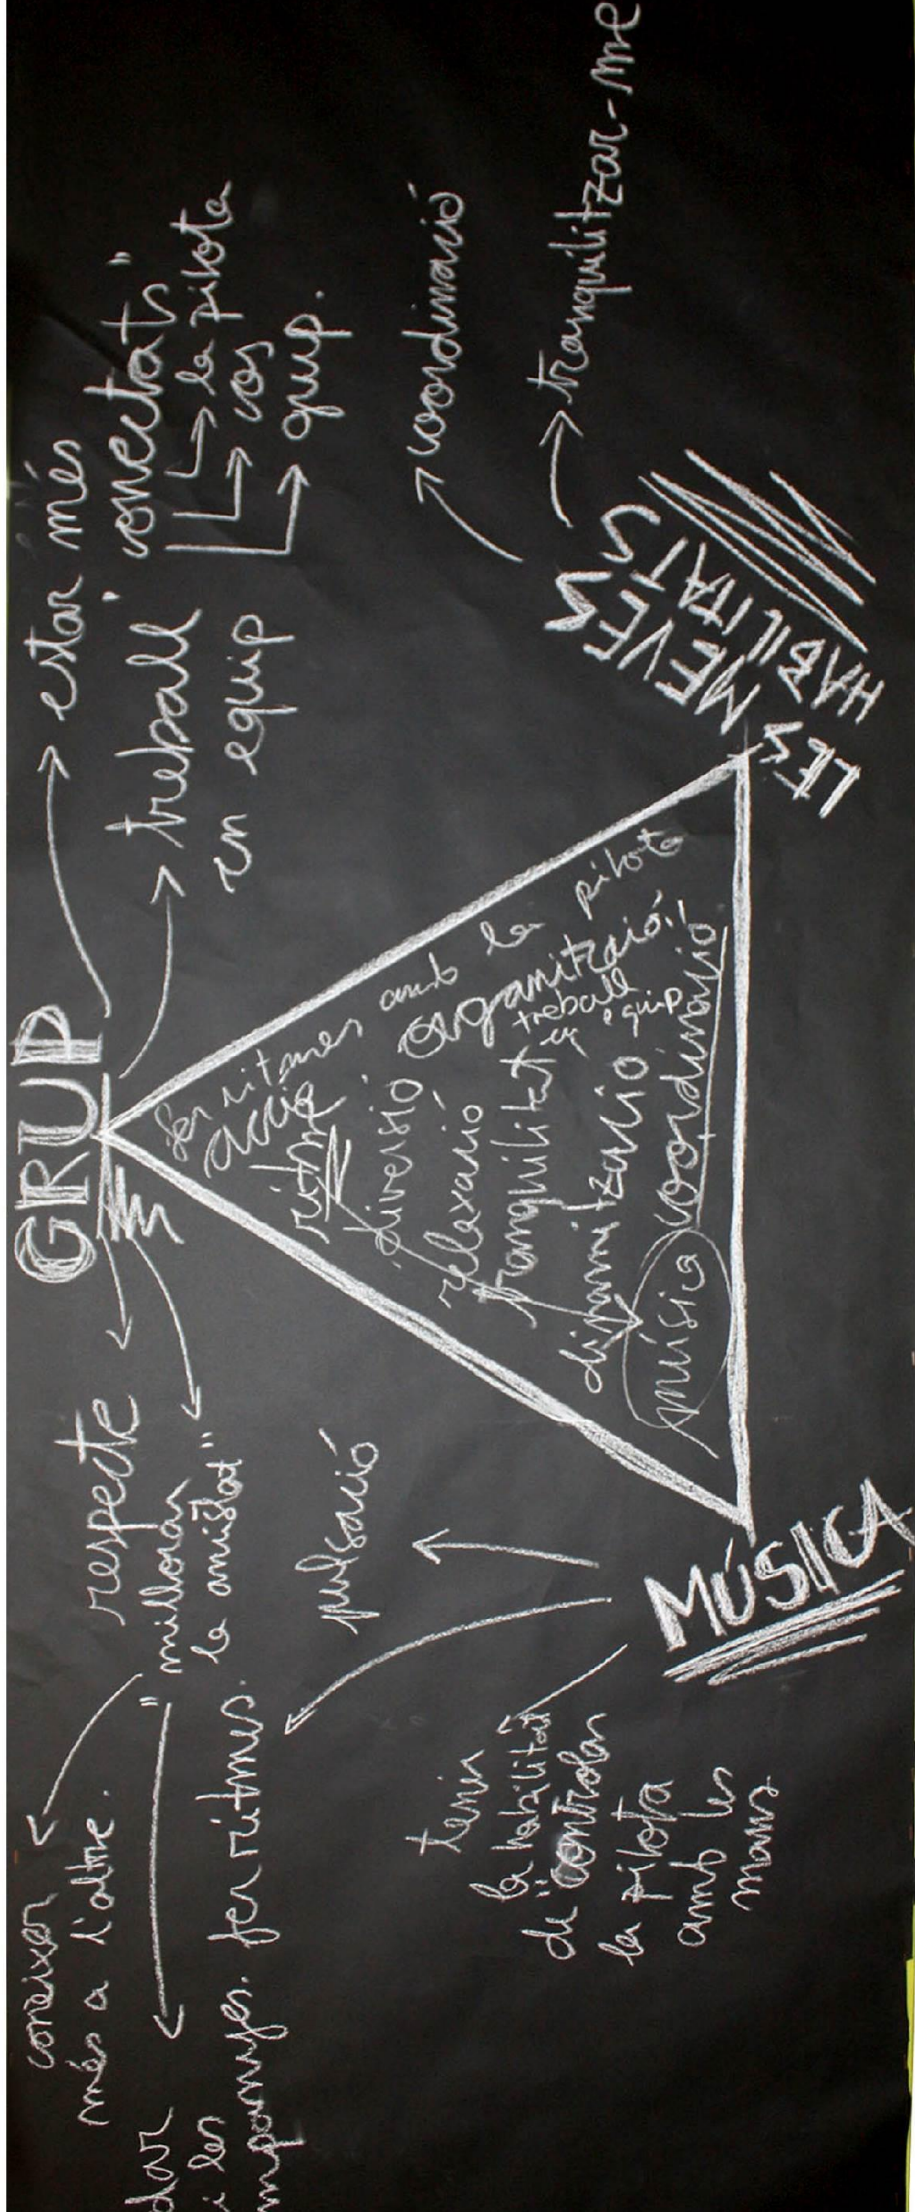 GRUP
estar més
"conectats"
la pilota
cos
treball
en equip
respecte
"millorar
la amistat"
coneixer
més a l'altre.
i les
fer ritmes.
pulsació
MÚSICA
tenir
la habilitat
de controlar
la pilota
amb les
mans
LES MEVES
HABILITATS
coordinació
tranquilitzar-me
fer ritmes amb la pilota
acció
ritme
diversió
organització!
relaxació
treball
en equip
tranquilitat
dinamització
música
coordinació